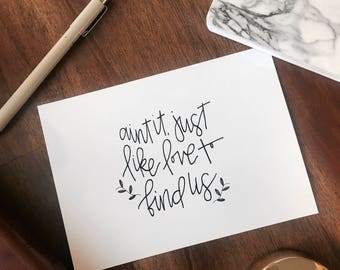 ain't it just
like love t
find us